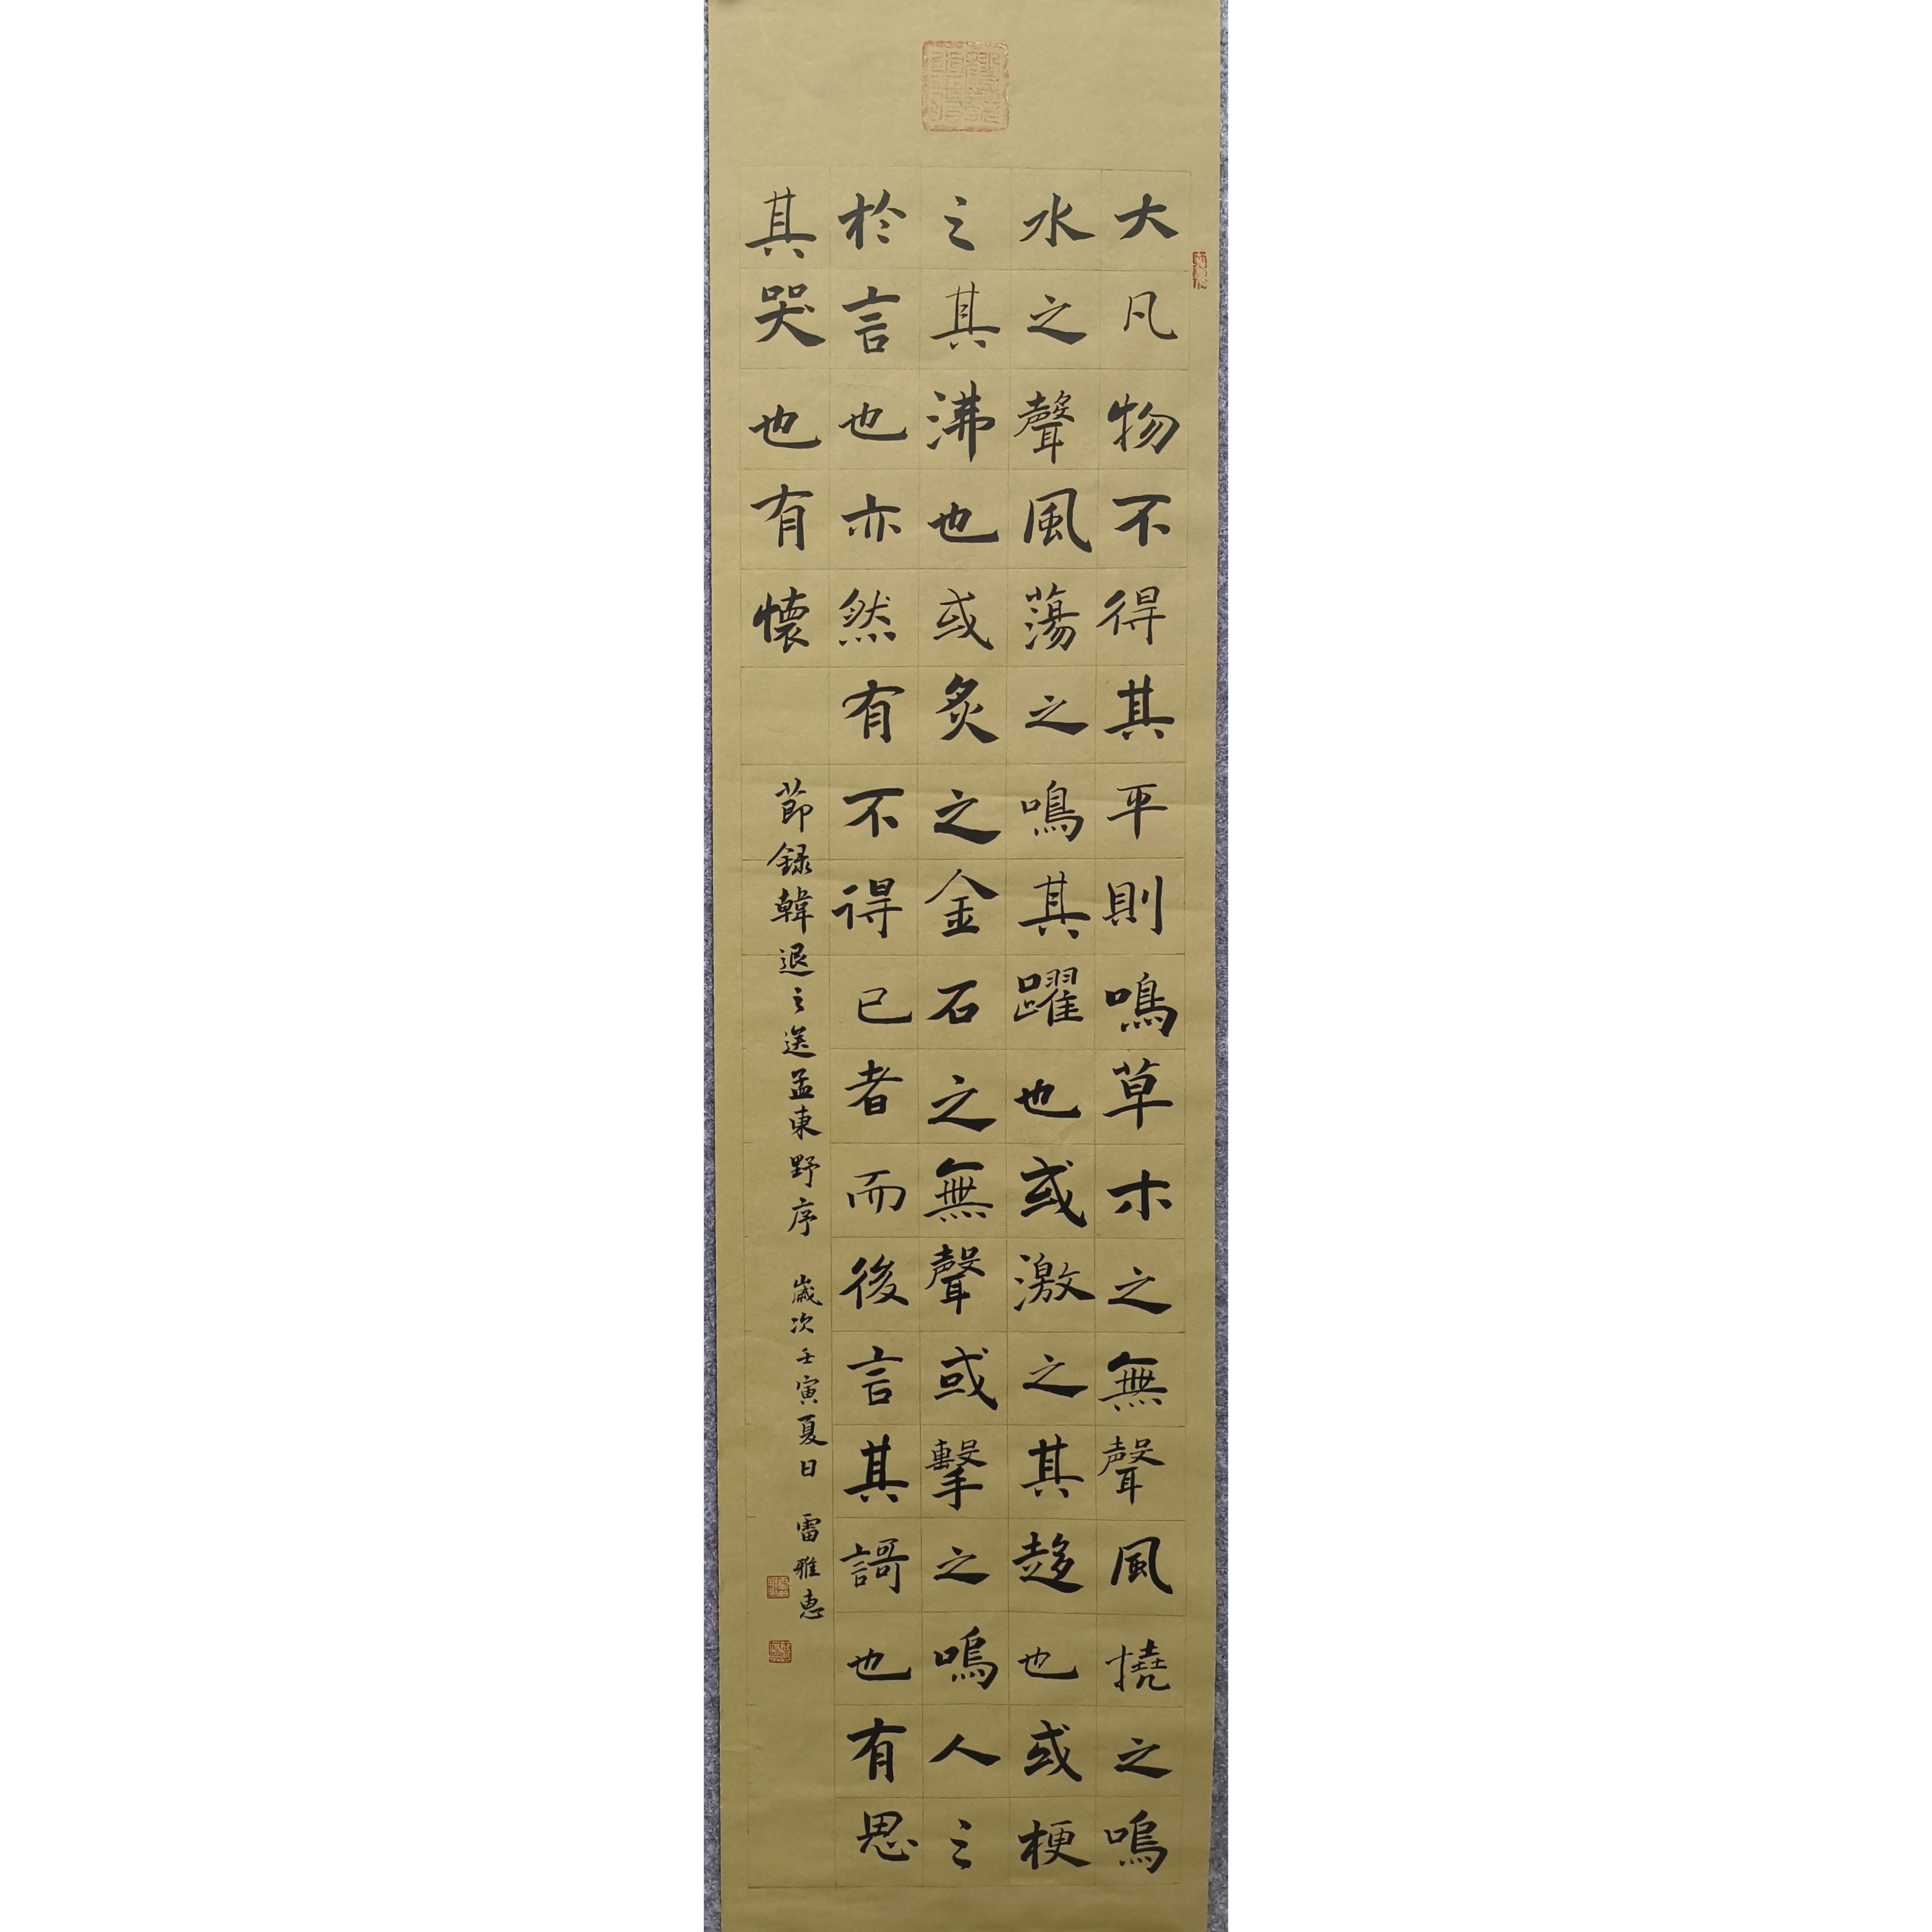 大凡物不得其平則鳴草木之無聲風撓之鳴
水之聲風蕩之鳴其躍也或激之其趍也或梗
之其沸也或炙之金石之無聲或擊之鳴人之
於言也亦然有不得已者而後言其謌也有思
其哭也有懷
節録韓退之送孟東野序 歲次壬寅夏日 雷雅惠